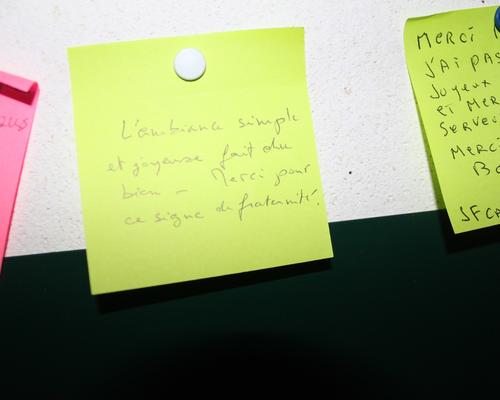 L'ambiance simple
et joyeuse fait du
bien – Merci pour
ce signe de fraternité.
MERCI
J'AI PAS
JOYEUX
ET MER
SERVEU
MERCI
BO